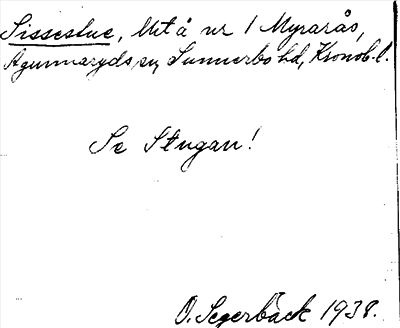 Sissestue, Ust å nr 1 Myrarås,
Agunnaryds sn, Sunnerbo hd, Kronob. l.
Se Stugan!
O. Segerbäck 1938.